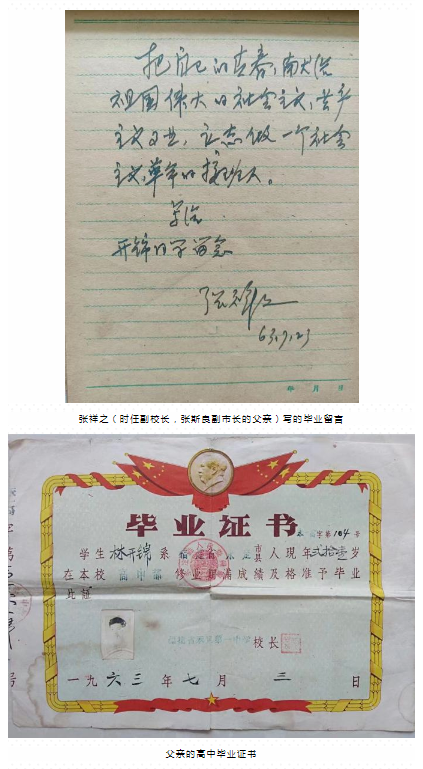 把自己的青春,贡献给
祖国伟大的社会主义、共产
主义事业,立志做一个社会
主义革命的接班人。
写给
开锦同学留念
张祥之
63.7.23
年 月 日
张祥之（时任副校长，张斯良副市长的父亲）写的毕业留言
毕业证书
字第104号
学生林开锦系福建省 市县人现年贰拾壹岁
在本校高中部修业期满成绩及格准予毕业
此证
第一中学 校长
一九六三年七月三日
父亲的高中毕业证书